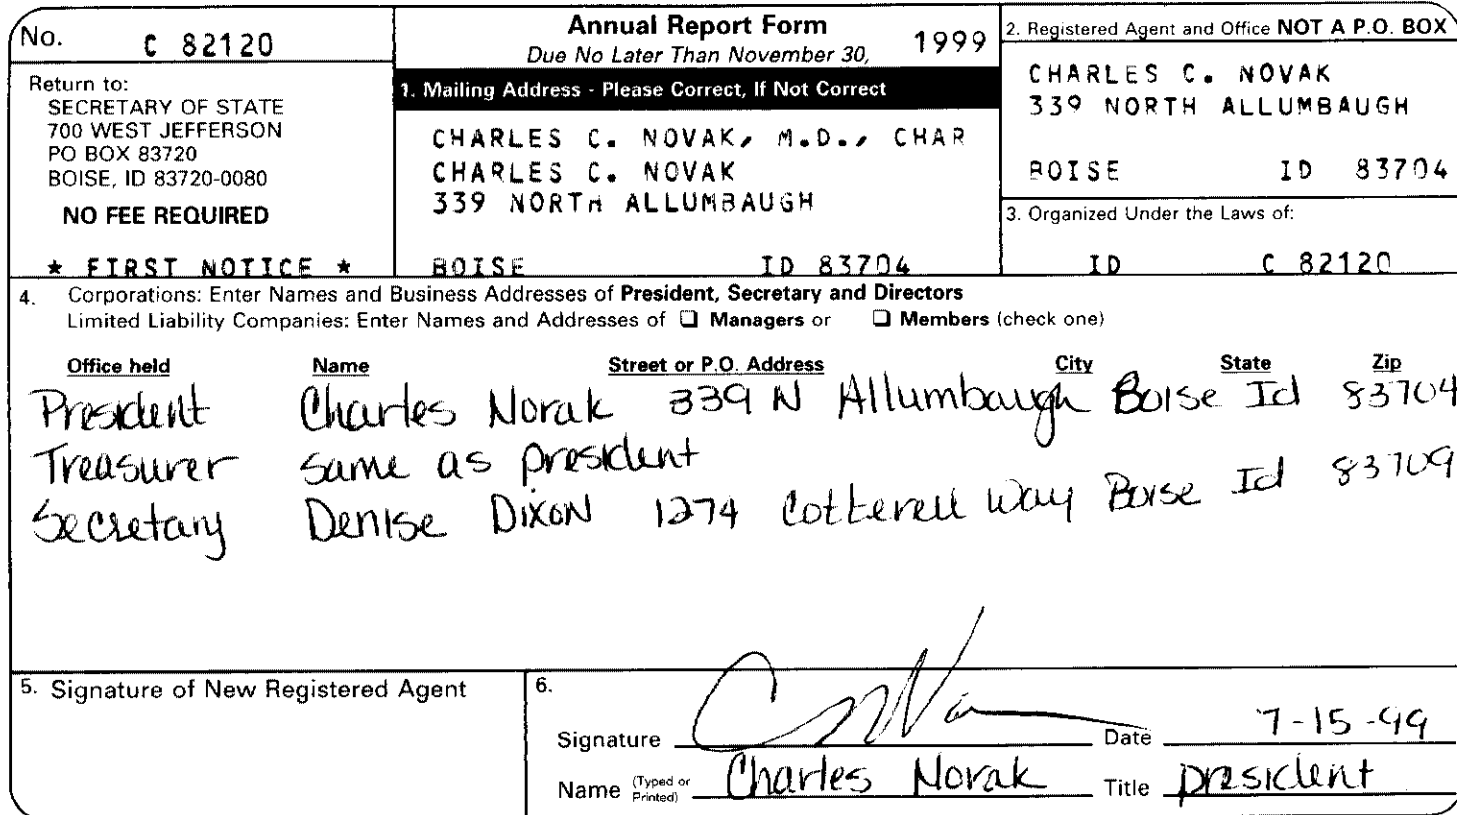 No. C 82120
Return to:
SECRETARY OF STATE
700 WEST JEFFERSON
PO BOX 83720
BOISE, ID 83720-0080
NO FEE REQUIRED
* FIRST NOTICE *
Annual Report Form 1999
Due No Later Than November 30,
1. Mailing Address - Please Correct, If Not Correct
CHARLES C. NOVAK, M.D., CHAR
CHARLES C. NOVAK
339 NORTH ALLUMBAUGH
BOISE ID 83704
2. Registered Agent and Office NOT A P.O. BOX
CHARLES C. NOVAK
339 NORTH ALLUMBAUGH
BOISE ID 83704
3. Organized Under the Laws of:
ID C 82120
4. Corporations: Enter Names and Business Addresses of President, Secretary and Directors
Limited Liability Companies: Enter Names and Addresses of ☐ Managers or ☐ Members (check one)
Office held Name Street or P.O. Address City State Zip
President Charles Novak 339 N Allumbaugh Boise Id 83704
Treasurer same as president
Secretary Denise Dixon 1274 Cotterell Way Boise Id 83709
5. Signature of New Registered Agent
6.
Signature Date 7-15-99
Name (Typed or Printed) Charles Novak Title president